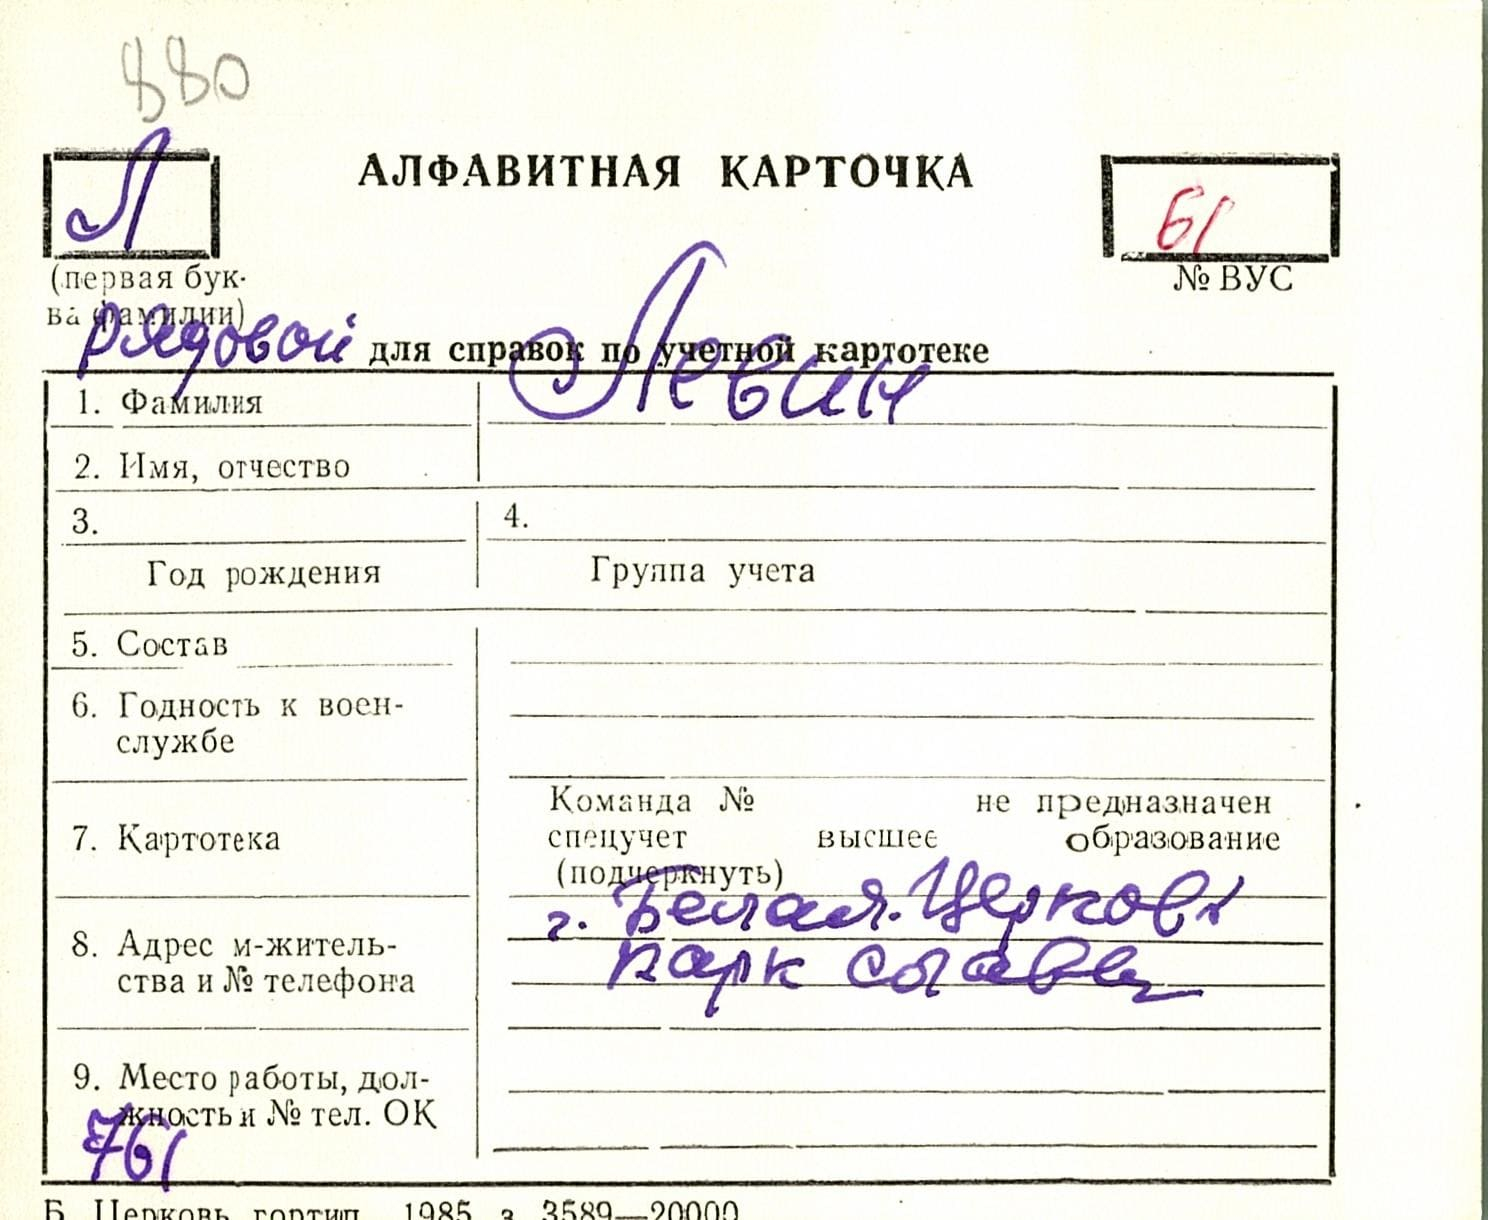 880
Л
АЛФАВИТНАЯ КАРТОЧКА
61
(первая бук-
ва фамилии)
№ ВУС
рядовой для справок по учетной картотеке
1. Фамилия Левин
2. Имя, отчество
3. 4.
Год рождения Группа учета
5. Состав
6. Годность к воен-
службе
7. Картотека
Команда № не предназначен
спецучет высшее образование
(подчеркнуть)
8. Адрес м-житель-
ства и № телефона
г. Белая Церковь
парк славы
9. Место работы, дол-
жность и № тел. ОК
761
Б. Церковь, гортип. 1985 з. 3589—20000